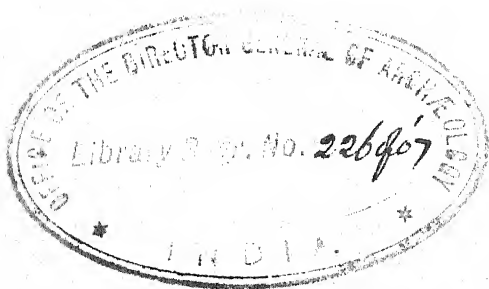 OFFICE OF THE DIRECTOR GENERAL OF ARCHÆOLOGY
Library Regr. No. 226 of 07
* INDIA. *